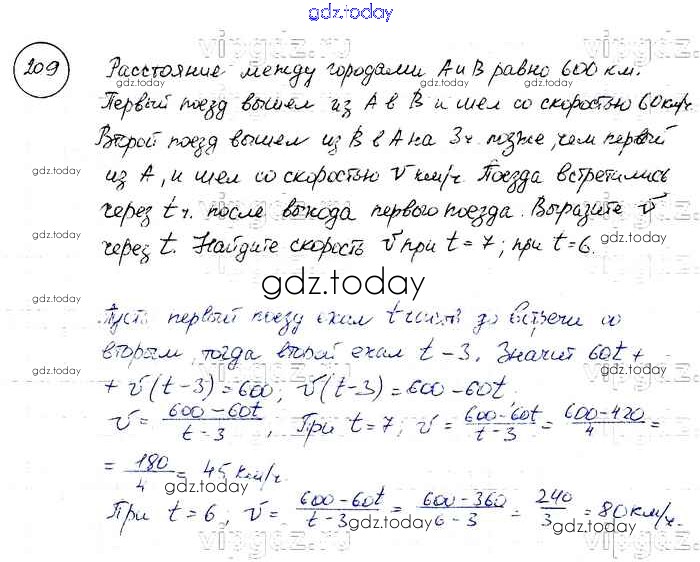 gdz.today
209
Расстояние между городами А и В равно 600 км.
Первый поезд вышел из А в В и шел со скоростью 60 км/ч.
Второй поезд вышел из В в А на 3 ч. позже, чем первый
из А, и шел со скоростью v км/ч. Поезда встретились
через t ч. после выхода первого поезда. Выразите v
через t. Найдите скорость v при t = 7; при t = 6.
gdz.today
Пусть первый поезд ехал t часов до встречи со
вторым, тогда второй ехал t - 3. Значит 60t +
+ v(t-3) = 600; v(t-3) = 600 - 60t
v = (600-60t)/(t-3), При t = 7; v = (600-60t)/(t-3) = (600-420)/4 =
= 180/4 = 45 км/ч.
При t = 6; v = (600-60t)/(t-3) = (600-360)/(6-3) = 240/3 = 80 км/ч.